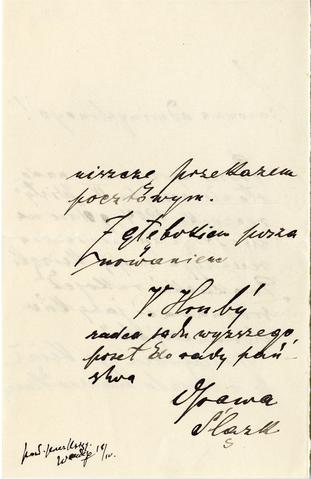 niszczę przekazem
pocztowym.
Z głębokiem posza
nowaniem
V. Hrubý
radca sądu wyższego
poseł do rady pań
stwa
Opawa
Śląsk